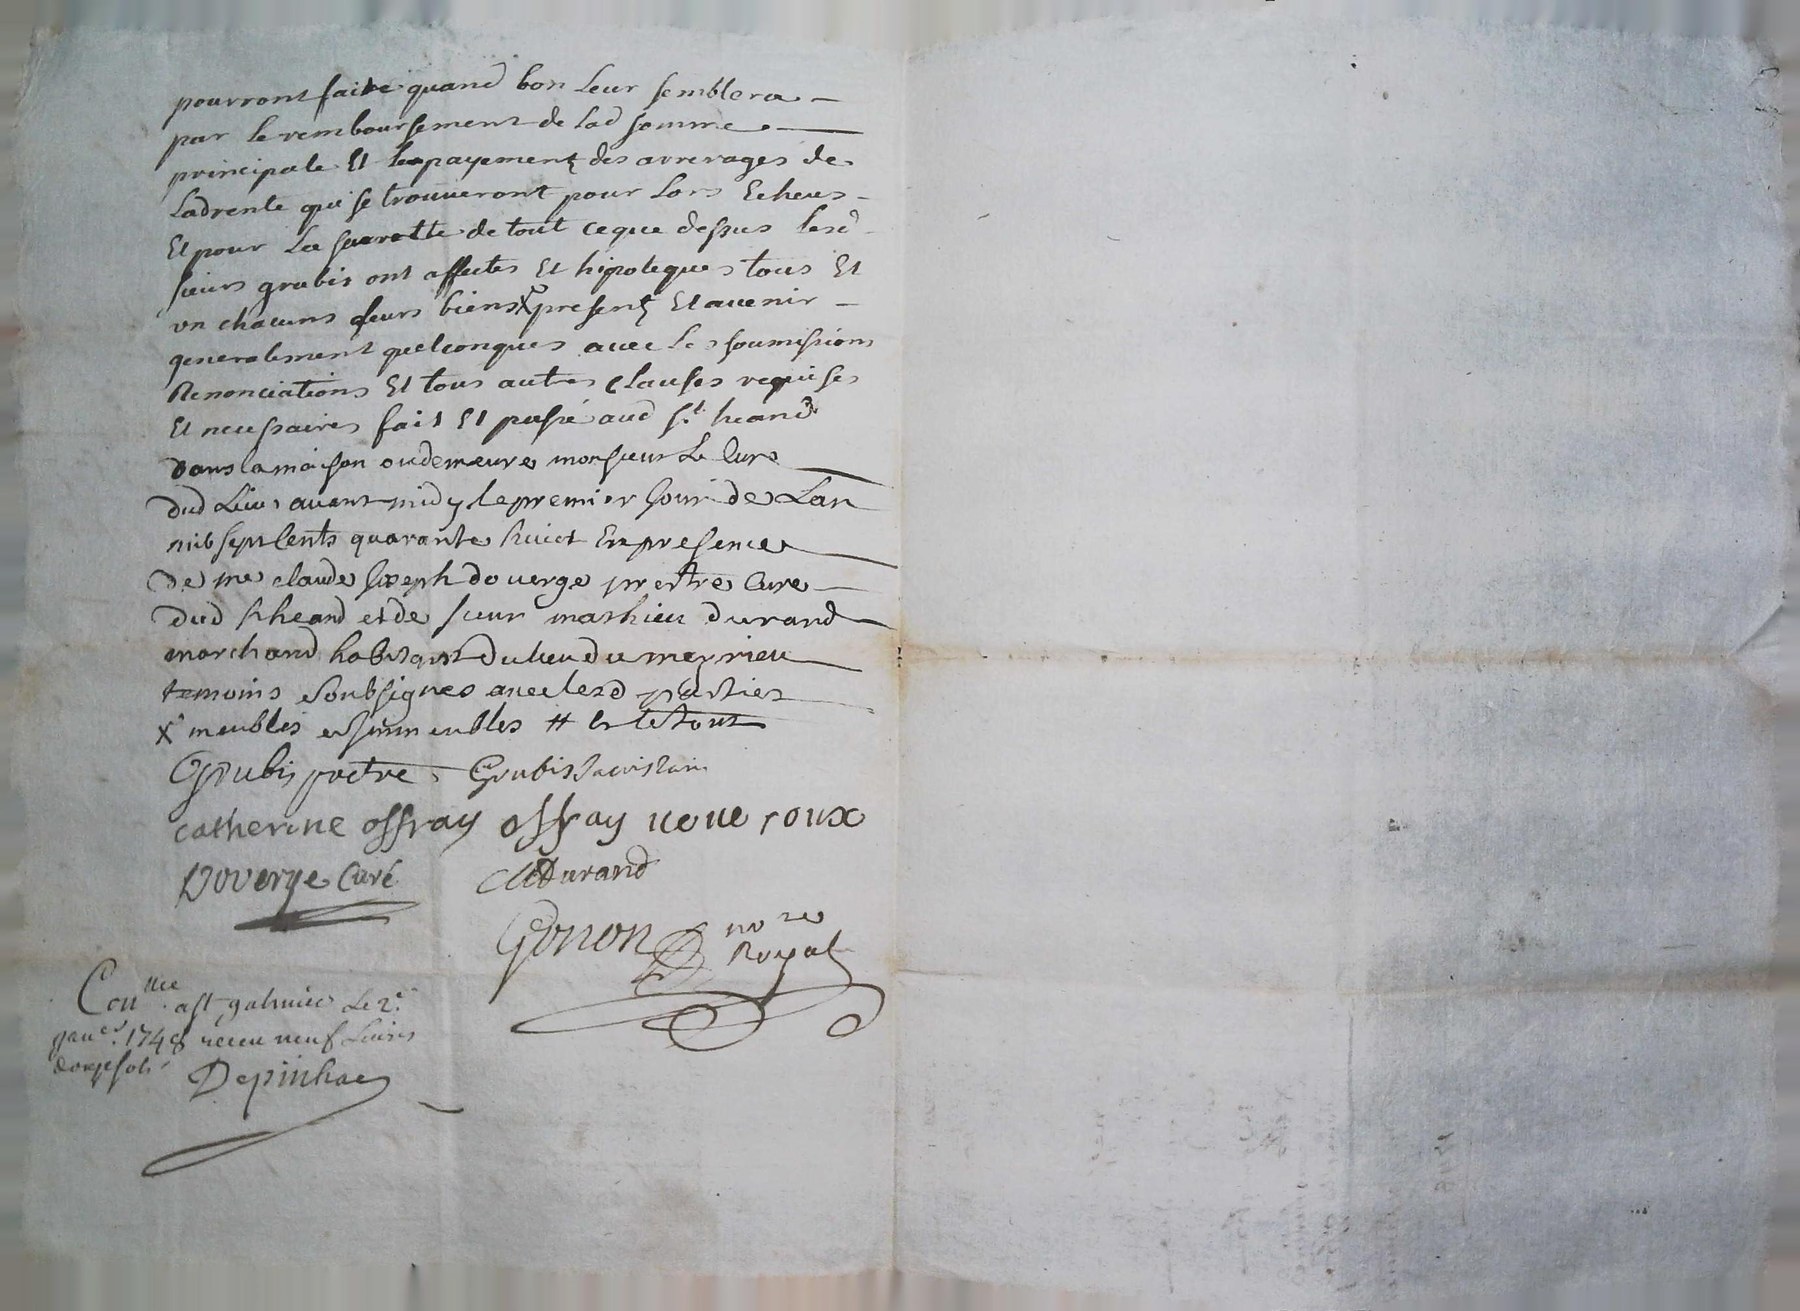 pourront faire quand bon Leur semblera
par le remboursement de Lad somme
principale Et le payement des arrerages de
Ladrente qui se trouueront pour Lors Echeus
Et pour La seurette de tout ceque dessus lesd
sieurs grubis ont affectes Et hipoteques tous Et
vn chacuns leurs biens X present Et auenir
generalement quelconques auec Les soumissions
Renonciations Et tous autres Clauses requises
Et necessaires fait Et passé aud St heand
Dans lamaison oudemeure monsieur Le Cure
Dud Lieu auant midy le premier Jour de Lan
mil sept Cents quarante huict En presence
De me claude Joseph doverge prestre Cure
Dud St heand et de sieur mathieu durand
marchand habitant Du lieu du meyrieu
temoins soubsignes auec lesd parties
X meubles et immeubles # et le tout
Grubis pretre Grubis Sacristain
catherine offray offray ueuue roux
Doverge Curé MDurand
Gonon nore
Royal
Conlle a st galmier Le 2e
januer 1748 receu neuf Liures
douze sols Depinhac